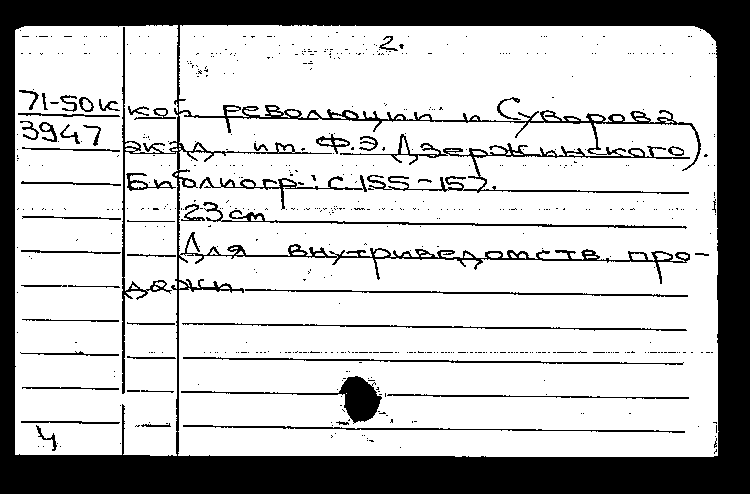 2.
71-50к кой революции и Суворова
3947 акад. им. Ф.Э. Дзержинского).
Библиогр.: с 155-157.
23 см
Для внутриведомств. про-
дажи.
Ч